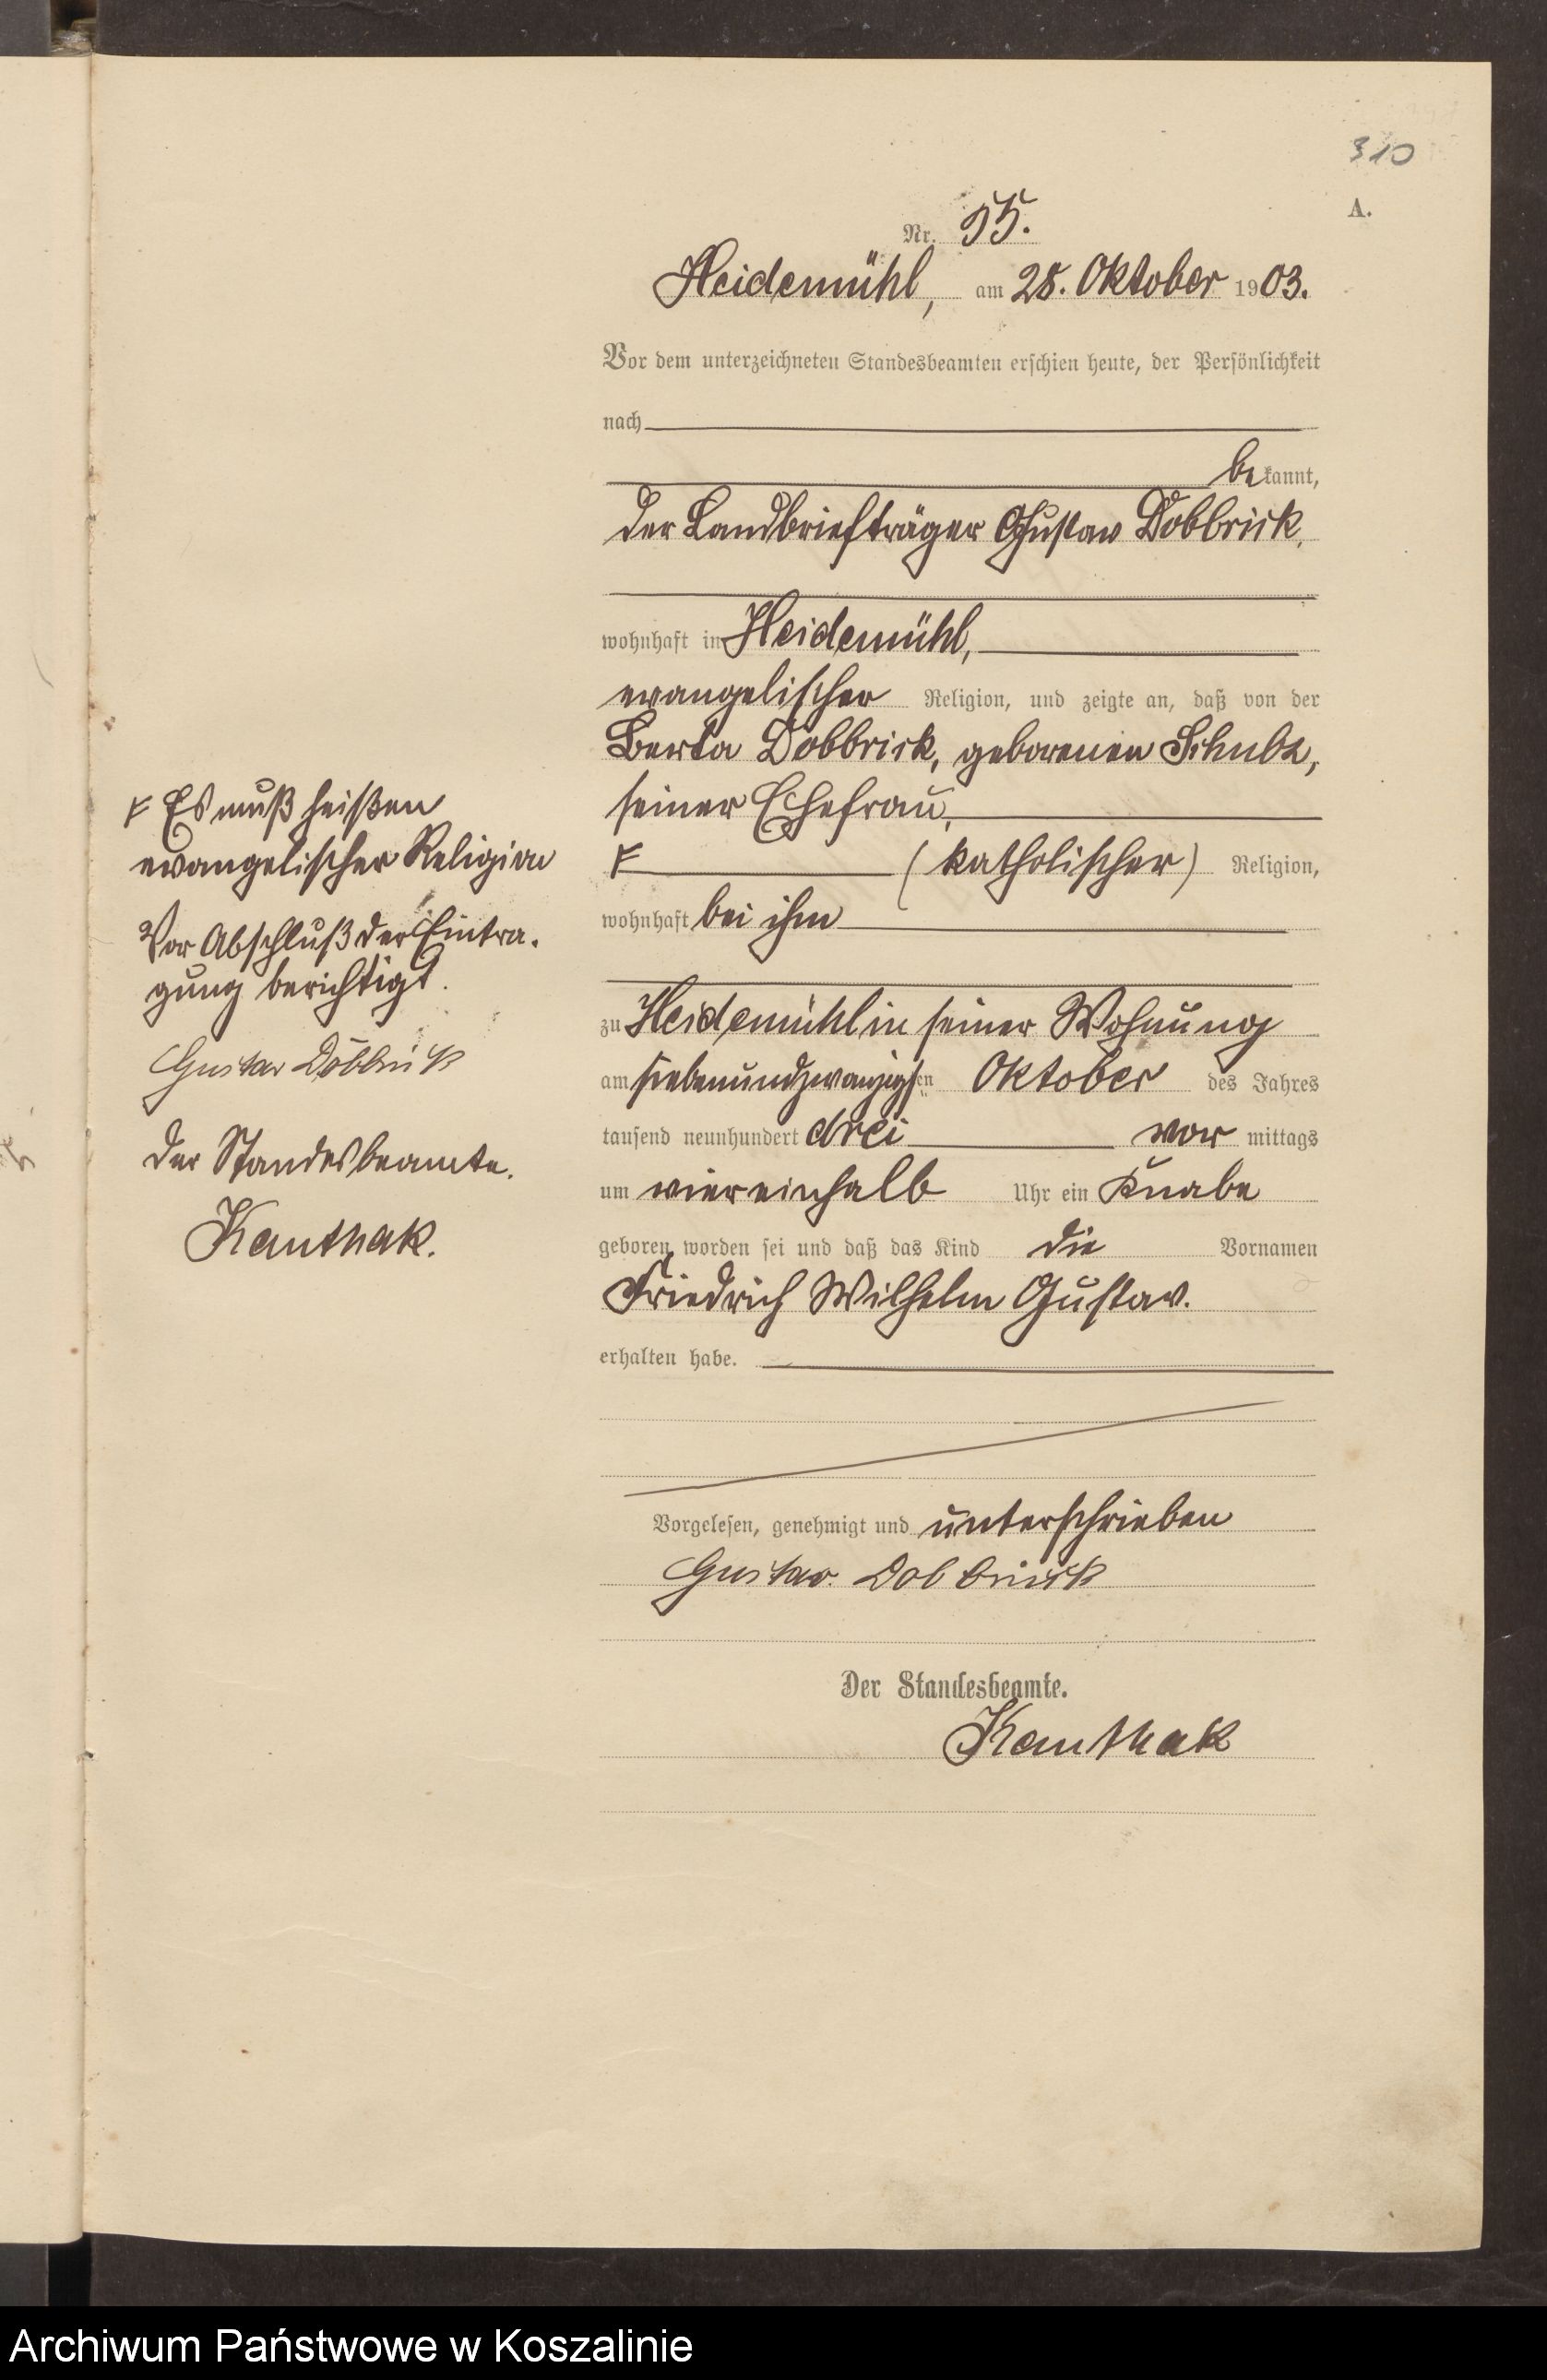 310
A.
Nr. 55.
Heidemühl, am 28. Oktober 1903.
Vor dem unterzeichneten Standesbeamten erschien heute, der Persönlichkeit
nach
bekannt,
der Landbriefträger Gustav Dobbrick,
wohnhaft in Heidemühl,
evangelischer Religion, und zeigte an, daß von der
Berta Dobbrick, geborenen Schulz,
seiner Ehefrau,
(katholischer) Religion,
wohnhaft bei ihm
zu Heidemühl in seiner Wohnung
am siebenundzwanzigsten Oktober des Jahres
tausend neunhundert drei vor mittags
um viereinhalb Uhr ein Knabe
geboren worden sei und daß das Kind die Vornamen
Friedrich Wilhelm Gustav.
erhalten habe.
Vorgelesen, genehmigt und unterschrieben
Gustav Dobbrick
Der Standesbeamte.
Kanthak
Es muß heißen
evangelischer Religion
Vor Abschluß der Eintra-
gung berichtigt.
Gustav Dobbrick
Der Standesbeamte.
Kanthak.
Archiwum Państwowe w Koszalinie